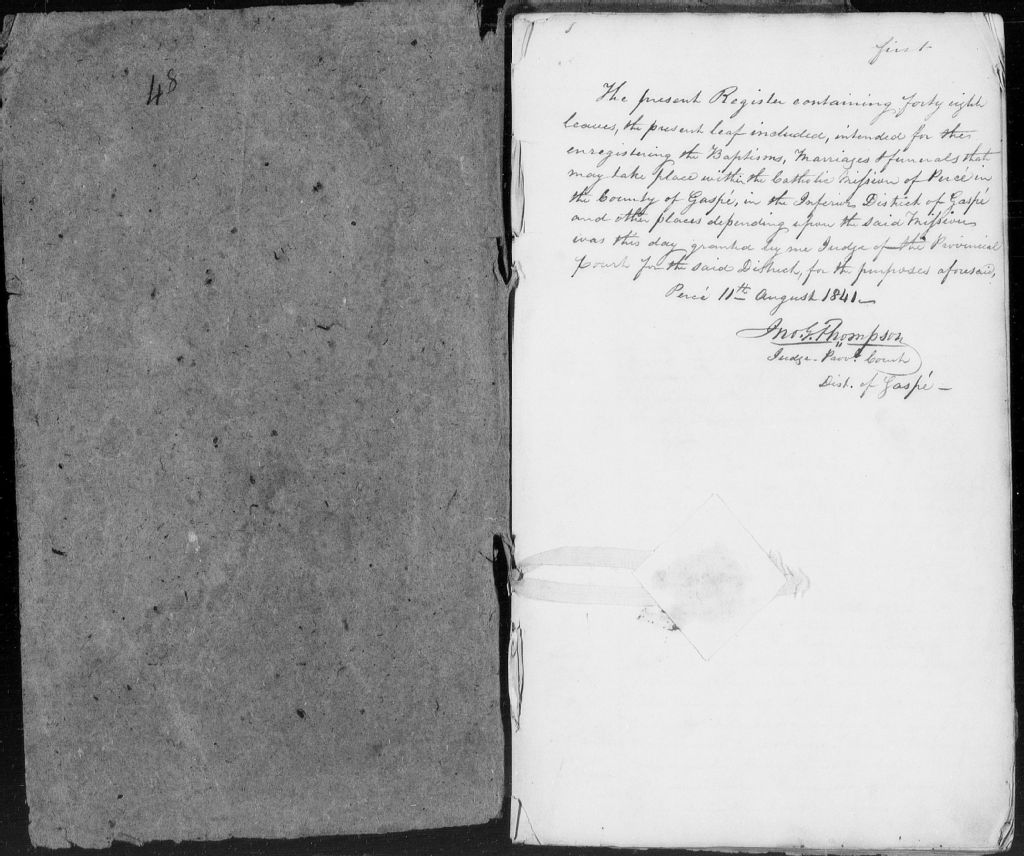 48
first
The present Register containing forty eight
leaves, the present leaf included, intended for the
enregistering the Baptisms, Marriages & funerals that
may take place within the Catholic Mission of Percé in
the County of Gaspé, in the Inferior District of Gaspé
and other places depending upon the said Mission
was this day granted by me Judge of the Provincial
Court for the said District, for the purposes aforesaid,
Percé 11th August 1841
Jno. G. Thompson
Judge Provl. Court
Dist. of Gaspé